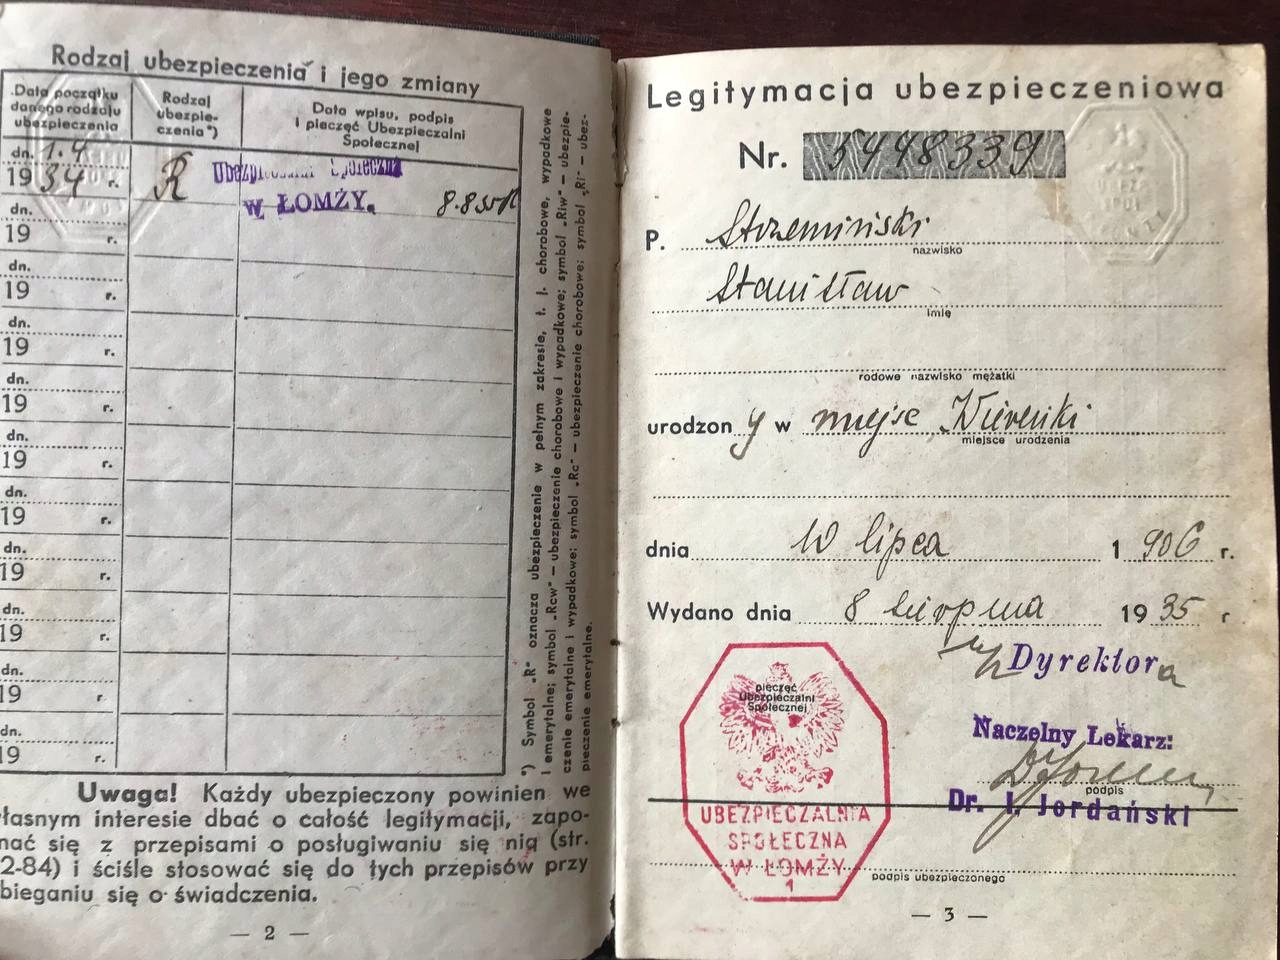 Rodzaj ubezpieczenia i jego zmiany
Data początku
danego rodzaju
ubezpieczenia
Rodzaj
ubezpie-
czenia*)
Data wpisu, podpis
i pieczęć Ubezpieczalni
Społecznej
dn. 1.4
1934 r.
R
Ubezpieczalnia Społeczna
w ŁOMŻY.
8.8.35
dn.
19 r.
dn.
19 r.
dn.
19 r.
dn.
19 r.
dn.
19 r.
dn.
19 r.
dn.
19 r.
dn.
19 r.
dn.
19 r
dn.
19 r.
*) Symbol „R" oznacza ubezpieczenie w pełnym zakresie, t. j. chorobowe, wypadkowe
i emerytalne; symbol „Rcw" — ubezpieczenie chorobowe i wypadkowe; symbol „Riw" — ubezpie-
czenie emerytalne i wypadkowe; symbol „Rc" — ubezpieczenie chorobowe; symbol „Ri" — ubez-
pieczenie emerytalne.
Uwaga! Każdy ubezpieczony powinien we
łasnym interesie dbać o całość legitymacji, zapo-
nać się z przepisami o posługiwaniu się nią (str.
2-84) i ściśle stosować się do tych przepisów przy
bieganiu się o świadczenia.
— 2 —
Legitymacja ubezpieczeniowa
Nr. 5448339
P. Strzemiński
nazwisko
Stanisław
imię
rodowe nazwisko mężatki
urodzony w miejsc
miejsce urodzenia
dnia 10 lipca 1906 r.
Wydano dnia 8 sierpnia 1935 r
Dyrektora
pieczęć
Ubezpieczalni
Społecznej
Naczelny Lekarz:
podpis
Dr. I. Jordański
UBEZPIECZALNIA
SPOŁECZNA
W ŁOMŻY
1
podpis ubezpieczonego
— 3 —